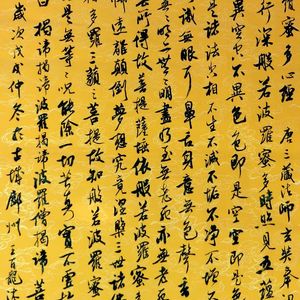 蜜多心經 唐三藏法師玄奘奉
行深般若波羅蜜多時照見五蘊
異空空不異色色即是空空即是色
是諸法空相不生不滅不垢不淨不增
識無眼耳鼻舌身意無色聲香
無明盡乃至無老死亦無老死
所得故菩提薩埵依般若波羅蜜
遠離顛倒夢想究竟涅槃三世諸佛
多羅三藐三菩提故知般若波羅蜜
是無等等咒能除一切苦真實不虛
曰揭諦揭諦波羅揭諦波羅僧揭諦菩
歲次戊戌仲冬於古城鄧州